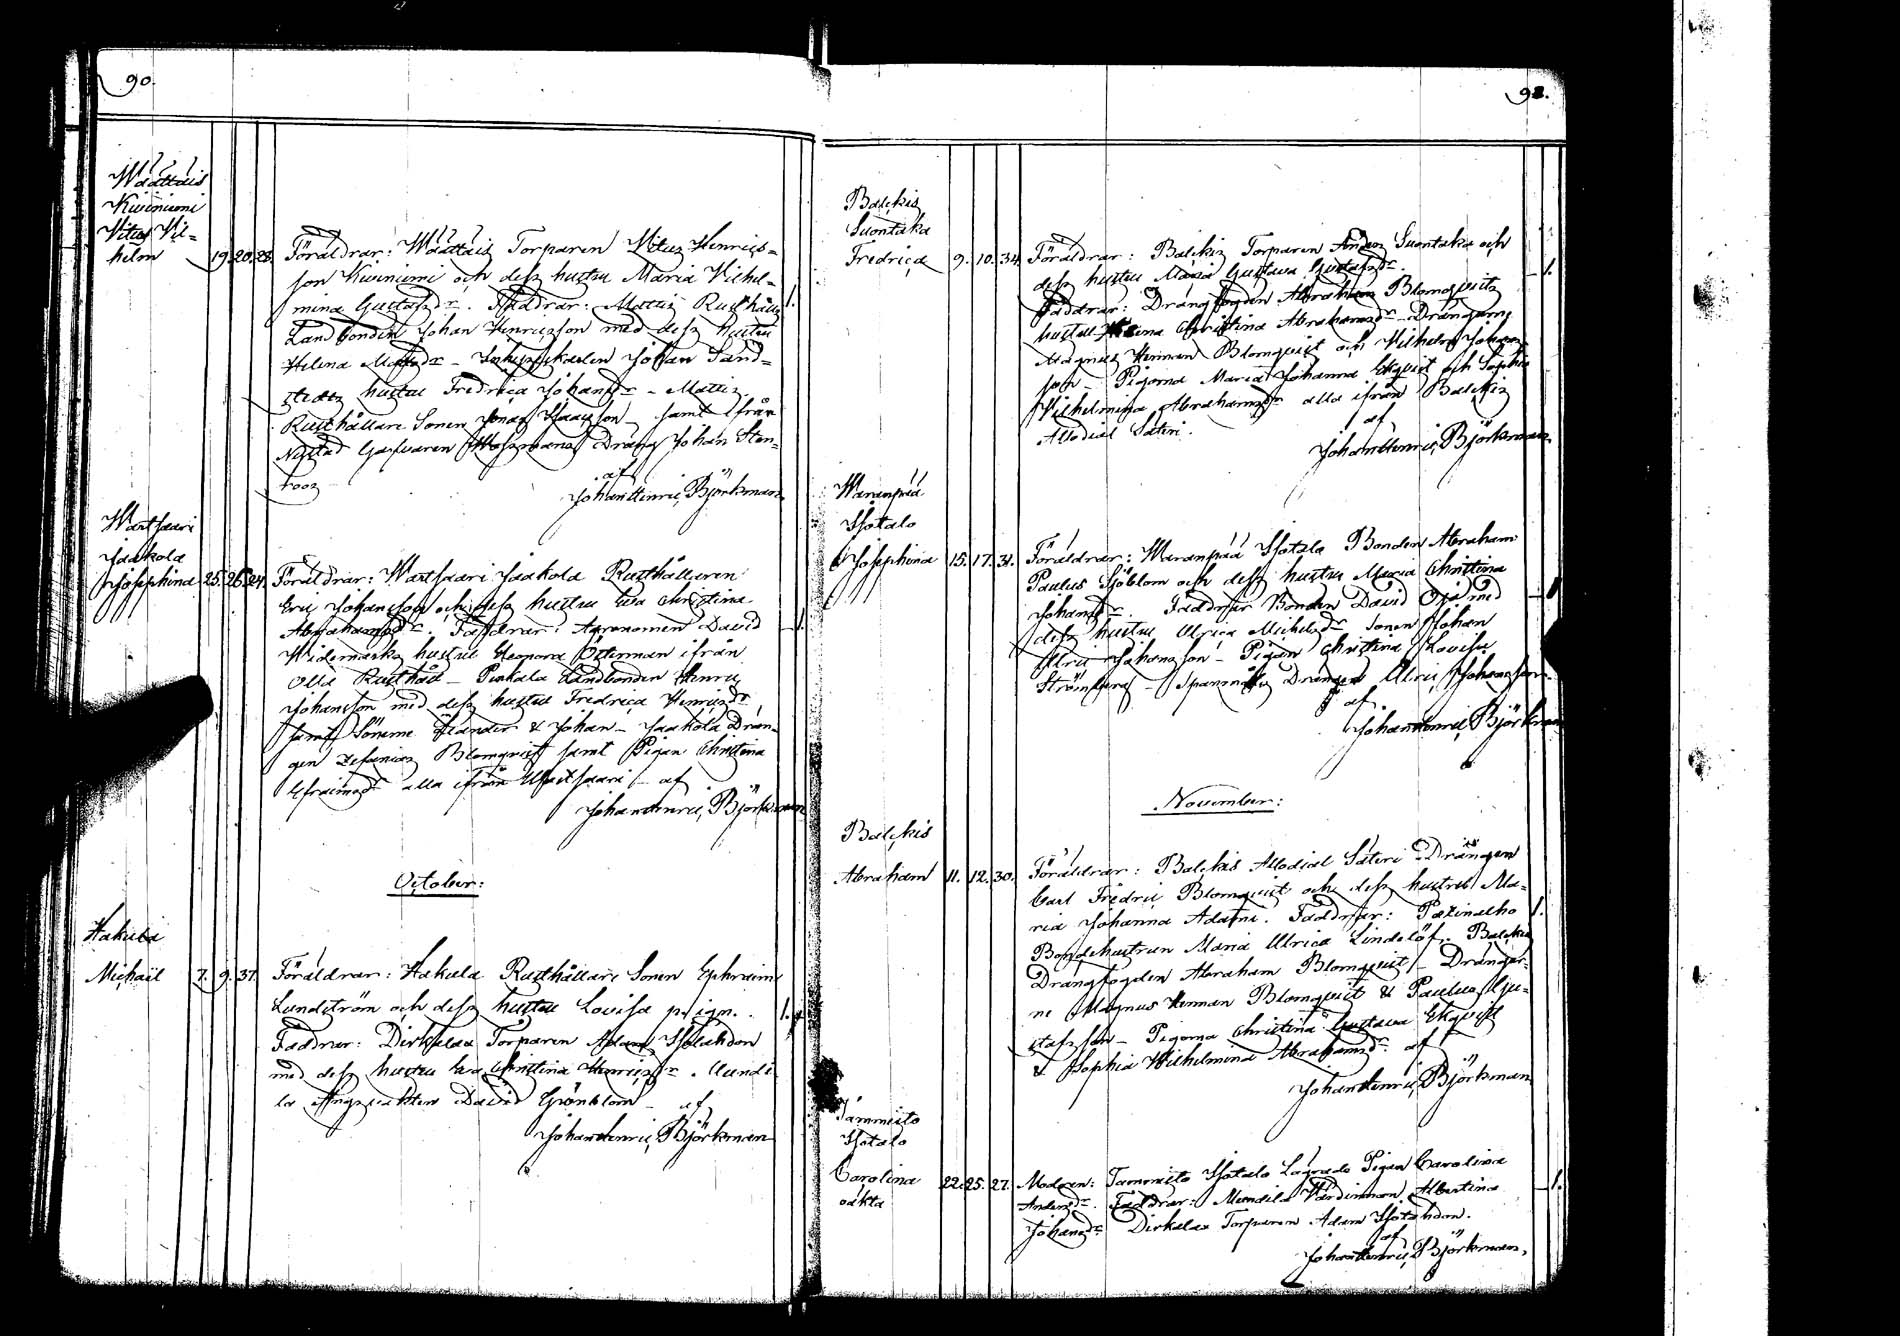 90.
Wäättäis
Kiviniemi
Vitus Vil=
helm 19. 20. 28.
Föräldrar: Wäättäis Torparen Vitus Henrics=
son Kiviniemi och dess hustru Maria Vilhel=
mina Gustafsdr. Faddrar: Mattis Rusthålls 1.
Landbonden Johan Henricsson med dess hustru
Helena Johan Sand=
stedts hustru Fredrica Johansdr – Mattis
Rusthållare Sonen Jonas Isaacsson – samt ifrån
Nystad Garfvaren Dräng Johan Sten=
roos
af
Johan Henric Björkman
Wartsaari
Jaakola
Josephina 25. 26. 24.
Föräldrar: Wartsaari Jaakola Rusthållaren
Eric Johansson och dess hustru Eva Christina
Abrahamsdr. Faddrar: Agronomen David 1.
Widemarks hustru Eleonora Österman ifrån
Olli Rusthåll – Pirkala Landbonden Henric
Johansson med dess hustru Fredrica Henricsdr
samt Sönerne & Johan – Jaakola Drän=
gen Zefanias Blomqvist samt Pigan Christina
Efraimsdr alla ifrån Wartsaari – af
Johan Henric Björkman
October:
Hakula
Michaël 7. 9. 37.
Föräldrar: Hakula Rusthållare Sonen Ephraim
Lundström och dess hustru Lovisa p. ign. 1.
Faddrar: Dirkslax Torparen Adam Isotahdon
med dess hustru Eva Christina Henricsdr.
David Grönblom – af
Johan Henric Björkman
Balckis
Suontaka
Fredrica 9. 10. 34.
Föräldrar: Balckis Torparen Anders Suontaka och
dess hustru Maria Gustava Gustafsdr. 1.
Faddrar: Drängfogden Abraham Blomqvists
hustru Christina Abrahamsdr – Drängarne
Magnus Herman Blomqvist och Vilhelm Johans=
son – Pigorna Maria Johanna Ekqvist och Sophia
Vilhelmina Abrahamsdr alla ifrån Balckis
Allodial Säteri.
af
Johan Henric Björkman
Waranpää
Isotalo
Josephina 15. 17. 31.
Föräldrar: Waranpää Isotalo Bonden Abraham
Paulus Sjöblom och dess hustru Maria Christina
Johansdr. Faddrar Bonden David Oja med
dess hustru Ulrica Michelsdr Sonen Johan
Ulric Johansson – Pigan Christina Lovisa
Strömberg – Drängen Ulric Johansson.
af
Johan Henric Björkman
November:
Balckis
Abraham 11. 12. 30.
Föräldrar: Balckis Allodial Säteri Drängen
Carl Fredric Blomqvist och dess hustru Ma=
ria Johanna Adams. Faddrar: 1.
Bondehustrun Maria Ulrica Lindelöf. Balckis
Drängfogden Abraham Blomqvist – Drängar=
ne Magnus Herman Blomqvist & Paulus Gu=
stafsson – Pigorna Christina Gustava Ekqvist
& Sophia Wilhelmina Abrahamsdr. af
Johan Henric Björkman
Tammisto
Isotalo
Carolina 22. 25. 27.
oäkta
Modren: Tammisto Isotalo Lägrade Pigan Carolina
Andersdr. Faddrar: Mundila Värdinnan Albertina 1.
Johansdr Dirkslax Torparen Adam Isotahdon.
af
Johan Henric Björkman.